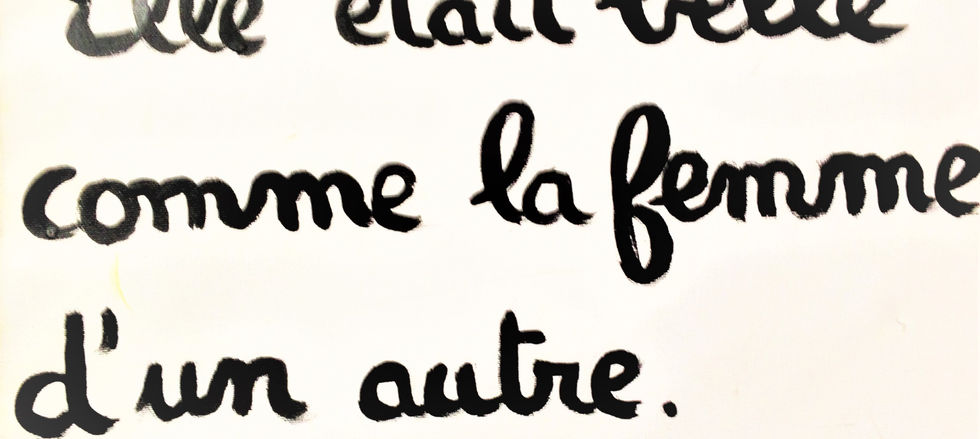 Elle était belle
comme la femme
d'un autre.